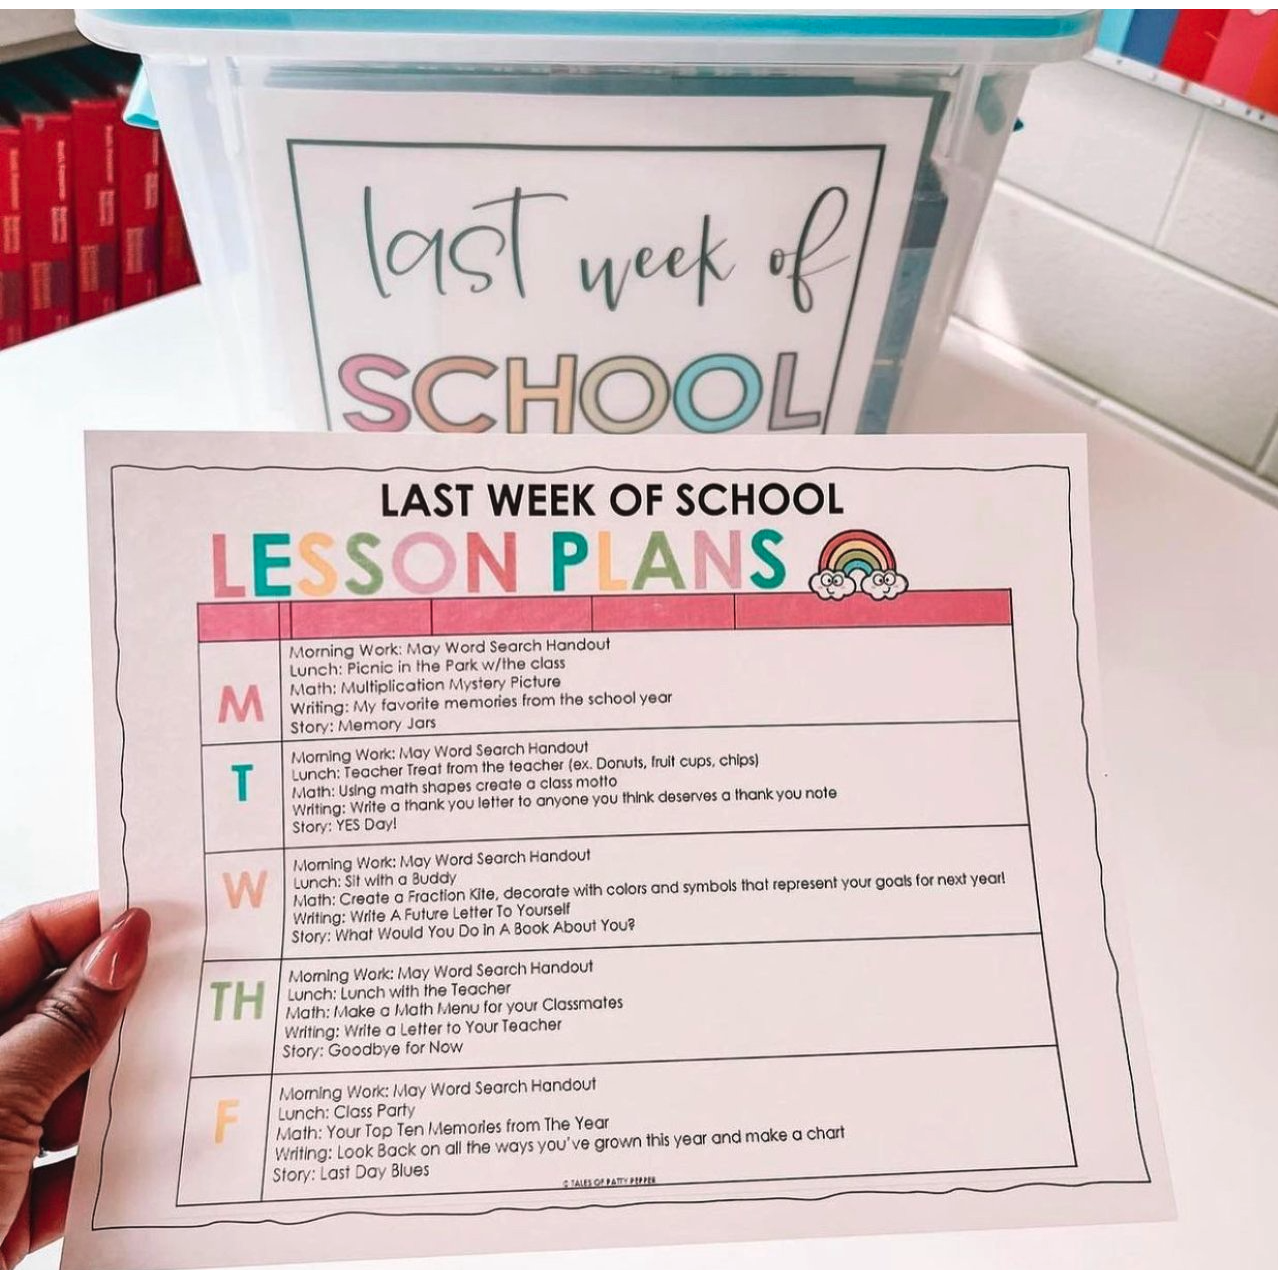 last week of
SCHOOL
LAST WEEK OF SCHOOL
LESSON PLANS
M
Morning Work: May Word Search Handout
Lunch: Picnic in the Park w/the class
Math: Multiplication Mystery Picture
Writing: My favorite memories from the school year
Story: Memory Jars
T
Morning Work: May Word Search Handout
Lunch: Teacher Treat from the teacher (ex. Donuts, fruit cups, chips)
Math: Using math shapes create a class motto
Writing: Write a thank you letter to anyone you think deserves a thank you note
Story: YES Day!
W
Morning Work: May Word Search Handout
Lunch: Sit with a Buddy
Math: Create a Fraction Kite, decorate with colors and symbols that represent your goals for next year!
Writing: Write A Future Letter To Yourself
Story: What Would You Do in A Book About You?
TH
Morning Work: May Word Search Handout
Lunch: Lunch with the Teacher
Math: Make a Math Menu for your Classmates
Writing: Write a Letter to Your Teacher
Story: Goodbye for Now
F
Morning Work: May Word Search Handout
Lunch: Class Party
Math: Your Top Ten Memories from The Year
Writing: Look Back on all the ways you've grown this year and make a chart
Story: Last Day Blues
© TALES OF PATTY PEPPER